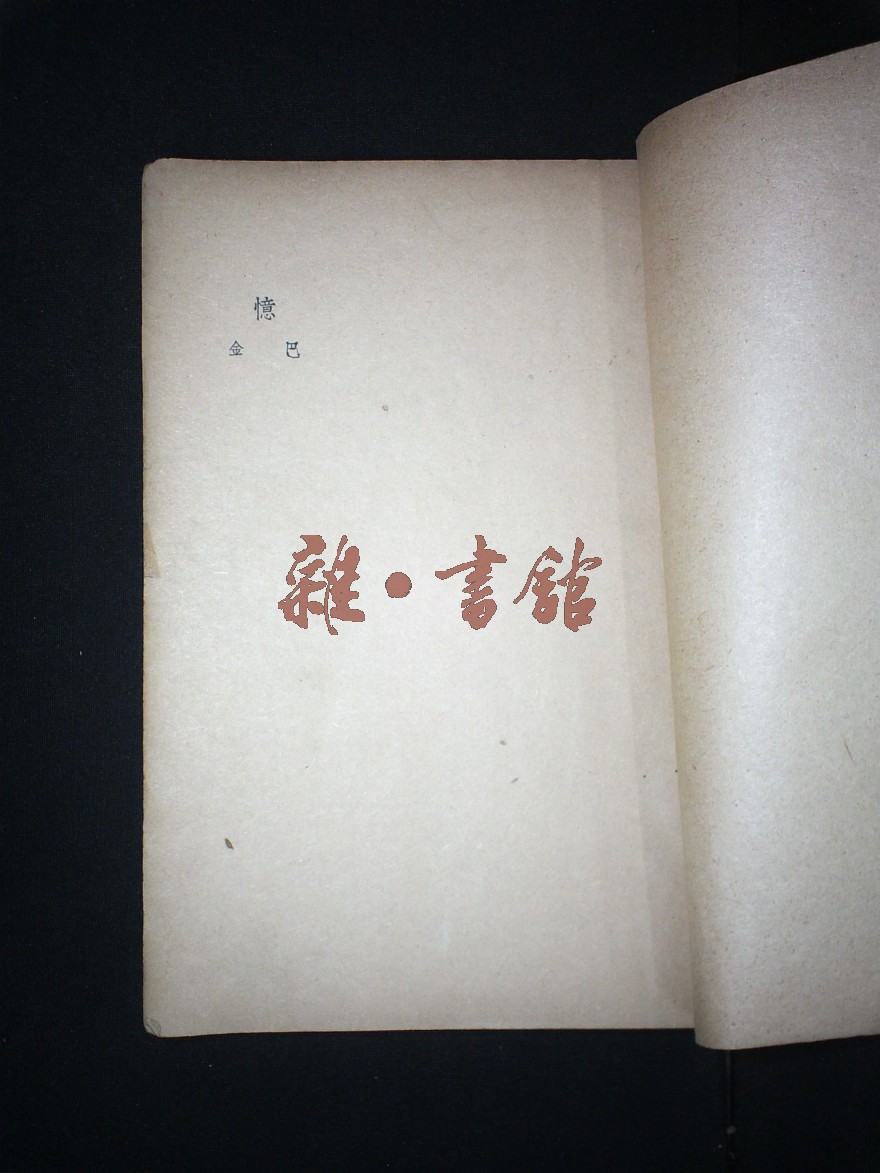 憶
巴金
雜·書館